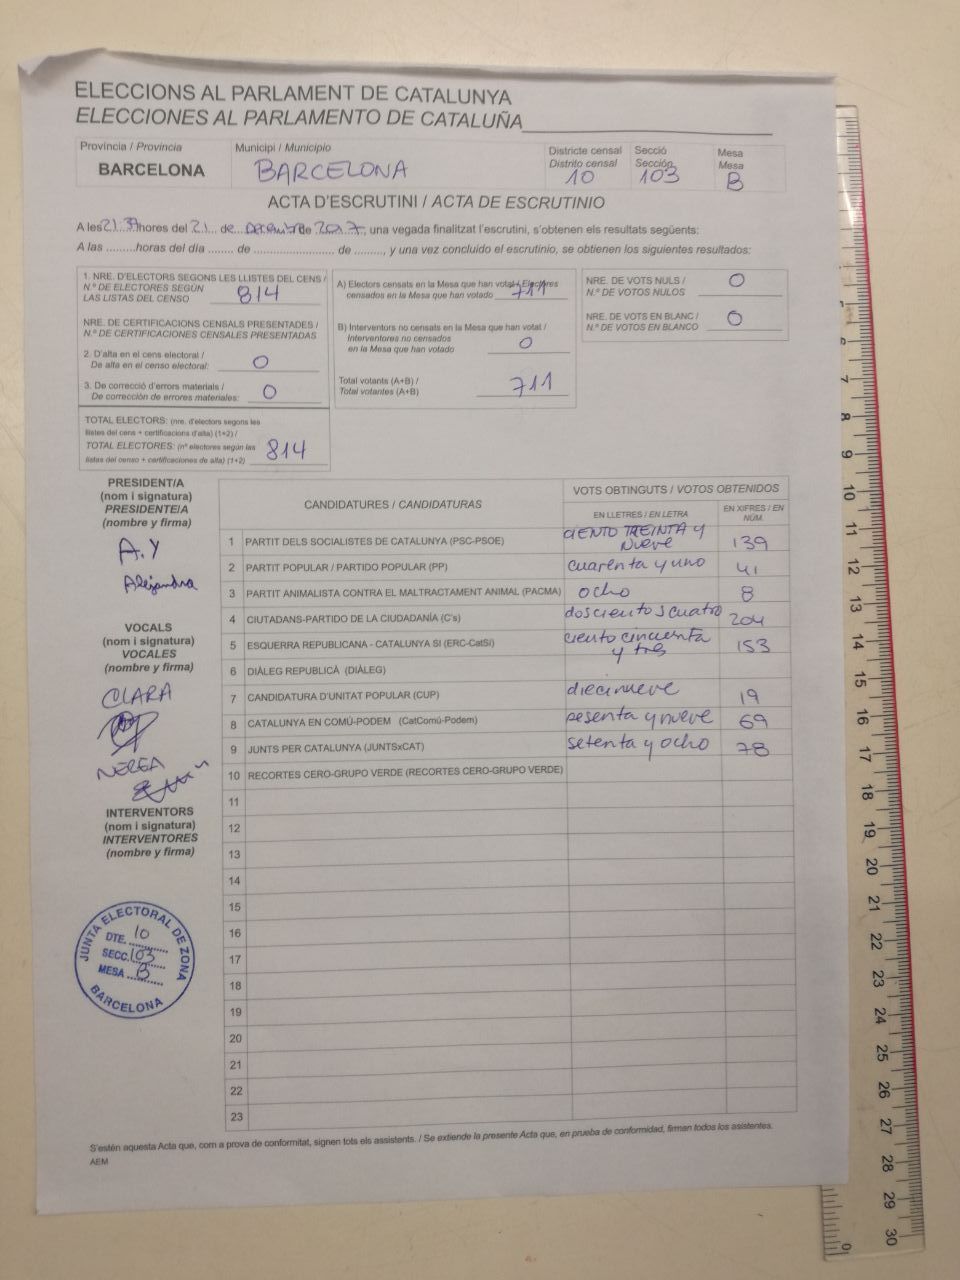 ELECCIONS AL PARLAMENT DE CATALUNYA
ELECCIONES AL PARLAMENTO DE CATALUÑA
Provincia / Provincia
BARCELONA
Municipi / Municipio
BARCELONA
Districte censal
Distrito censal
10
Secció
Sección
103
Mesa
Mesa
B
ACTA D'ESCRUTINI / ACTA DE ESCRUTINIO
A les 21.37 hores del 21 de decembre de 2017, una vegada finalitzat l'escrutini, s'obtenen els resultats següents:
A las .........horas del día ....... de ....................... de ........, y una vez concluido el escrutinio, se obtienen los siguientes resultados:
1. NRE. D'ELECTORS SEGONS LES LLISTES DEL CENS /
N.º DE ELECTORES SEGÚN
LAS LISTAS DEL CENSO
814
NRE. DE CERTIFICACIONS CENSALS PRESENTADES /
N.º DE CERTIFICACIONES CENSALES PRESENTADAS
2. D'alta en el cens electoral /
De alta en el censo electoral:
0
3. De correcció d'errors materials /
De corrección de errores materiales:
0
TOTAL ELECTORS: (nre. d'electors segons les
llistes del cens + certificacions d'alta) (1+2) /
TOTAL ELECTORES: (nº electores según las
listas del censo + certificaciones de alta) (1+2)
814
A) Electors censats en la Mesa que han votat / Electores
censados en la Mesa que han votado
711
B) Interventors no censats en la Mesa que han votat /
Interventores no censados
en la Mesa que han votado
0
Total votants (A+B) /
Total votantes (A+B)
711
NRE. DE VOTS NULS /
N.º DE VOTOS NULOS
0
NRE. DE VOTS EN BLANC /
N.º DE VOTOS EN BLANCO
0
PRESIDENT/A
(nom i signatura)
PRESIDENTE/A
(nombre y firma)
A.Y
Alejandra
VOCALS
(nom i signatura)
VOCALES
(nombre y firma)
CLARA
NEREA
INTERVENTORS
(nom i signatura)
INTERVENTORES
(nombre y firma)
JUNTA ELECTORAL DE ZONA
DTE. 10
SECC. 103
MESA B
BARCELONA
CANDIDATURES / CANDIDATURAS
VOTS OBTINGUTS / VOTOS OBTENIDOS
EN LLETRES / EN LETRA
EN XIFRES / EN NÚM.
1 PARTIT DELS SOCIALISTES DE CATALUNYA (PSC-PSOE) CIENTO TREINTA Y Nueve 139
2 PARTIT POPULAR / PARTIDO POPULAR (PP) cuarenta y uno 41
3 PARTIT ANIMALISTA CONTRA EL MALTRACTAMENT ANIMAL (PACMA) ocho 8
4 CIUTADANS-PARTIDO DE LA CIUDADANÍA (C's) doscientos cuatro 204
5 ESQUERRA REPUBLICANA - CATALUNYA SÍ (ERC-CatSí) ciento cincuenta y tres 153
6 DIÀLEG REPUBLICÀ (DIÀLEG)
7 CANDIDATURA D'UNITAT POPULAR (CUP) diecinueve 19
8 CATALUNYA EN COMÚ-PODEM (CatComú-Podem) sesenta y nueve 69
9 JUNTS PER CATALUNYA (JUNTSxCAT) setenta y ocho 78
10 RECORTES CERO-GRUPO VERDE (RECORTES CERO-GRUPO VERDE)
11
12
13
14
15
16
17
18
19
20
21
22
23
S'estén aquesta Acta que, com a prova de conformitat, signen tots els assistents. / Se extiende la presente Acta que, en prueba de conformidad, firman todos los asistentes.
AEM
6
7
8
9
10
11
12
13
14
15
16
17
18
19
20
21
22
23
24
25
26
27
28
29
30
0